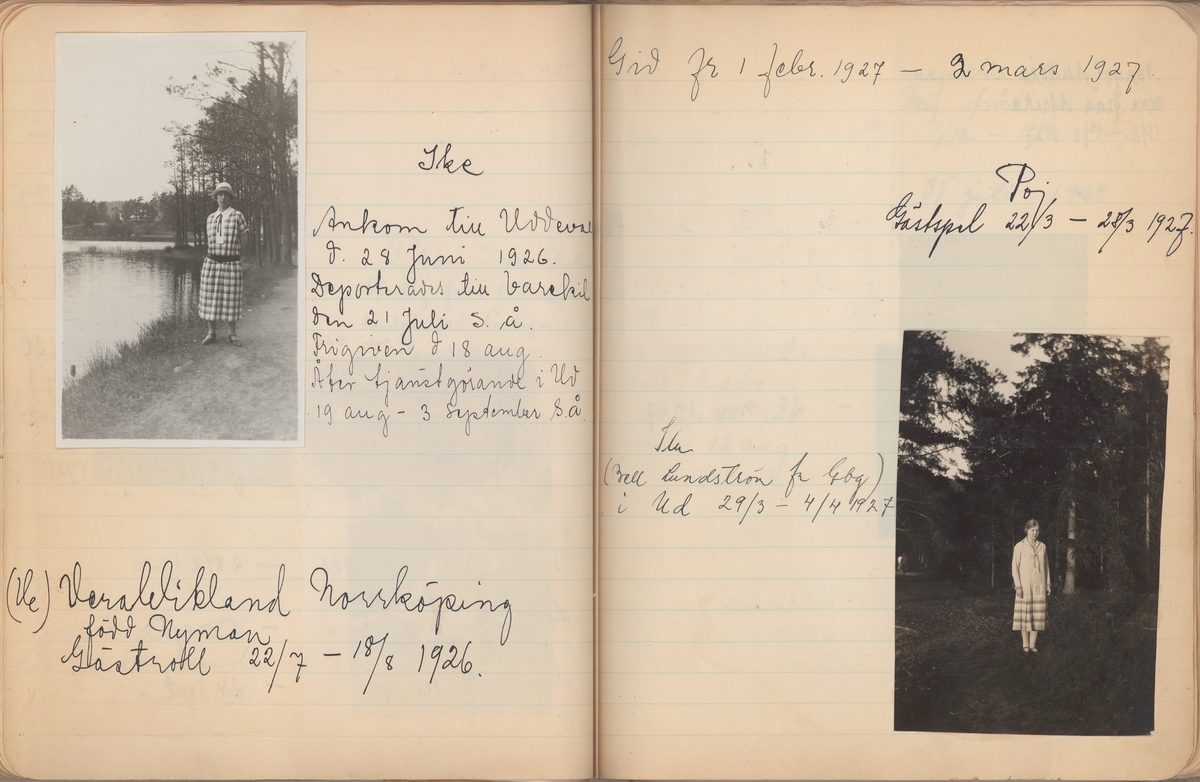 Ike
Ankom till Uddeval
d. 28 Juni 1926.
Deporterades till Varekil
den 21 Juli s. å.
Frigiven d 18 aug.
Åter tjänstgörande i Ud
19 aug - 3 September s.å.
(Ve) Vera Wikland Norrköping
född Nyman
Gästroll 22/7 - 18/8 1926.
Gid fr 1 febr. 1927 - 2 mars 1927.
Poj
Gästspel 22/3 - 28/3 1927.
Lundström fr Gbg)
i Ud 29/3 - 4/4 1927